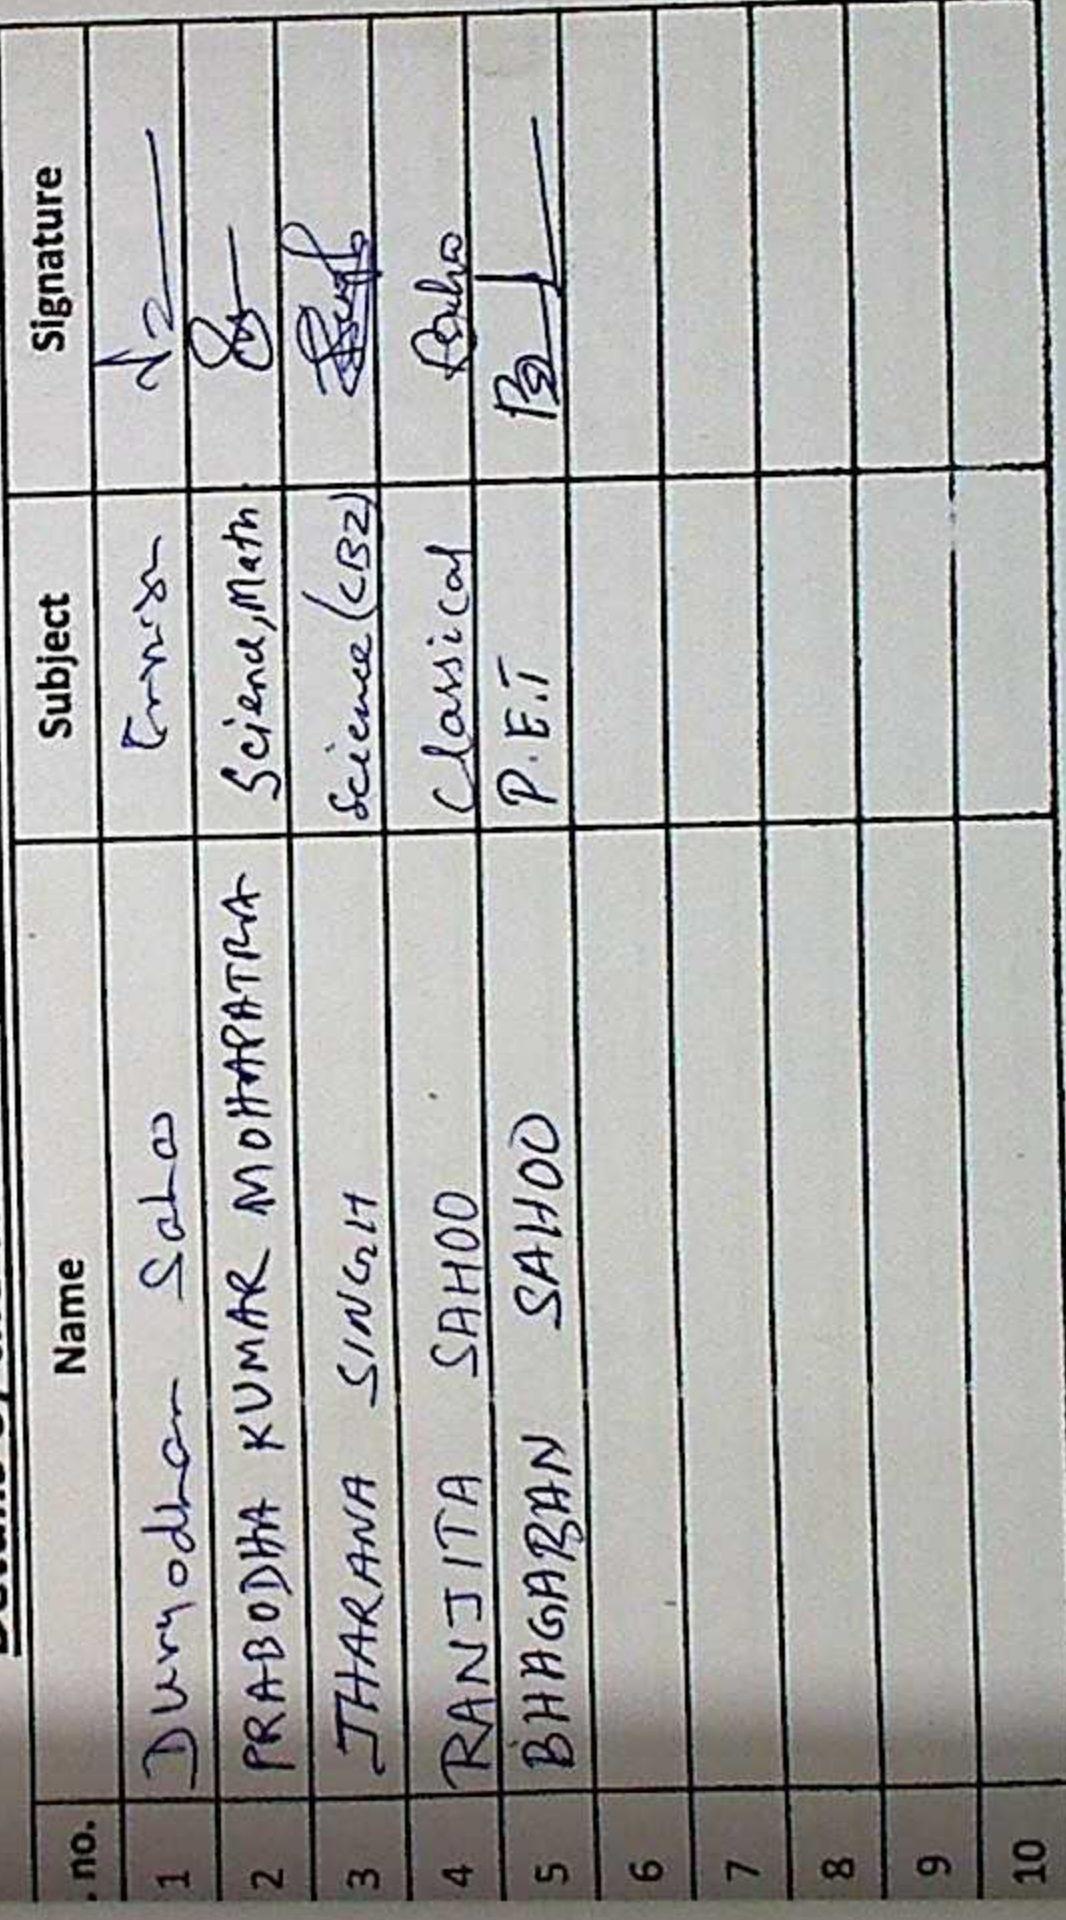 . no. Name Subject Signature
1 Duryodhan Sahoo
2 PRABODHA KUMAR MOHAPATRA Science, Math
3 JHARANA SINGH Science (CBZ)
4 RANJITA SAHOO Classical Sahoo
5 BHAGABAN SAHOO P.E.T
6
7
8
9
10